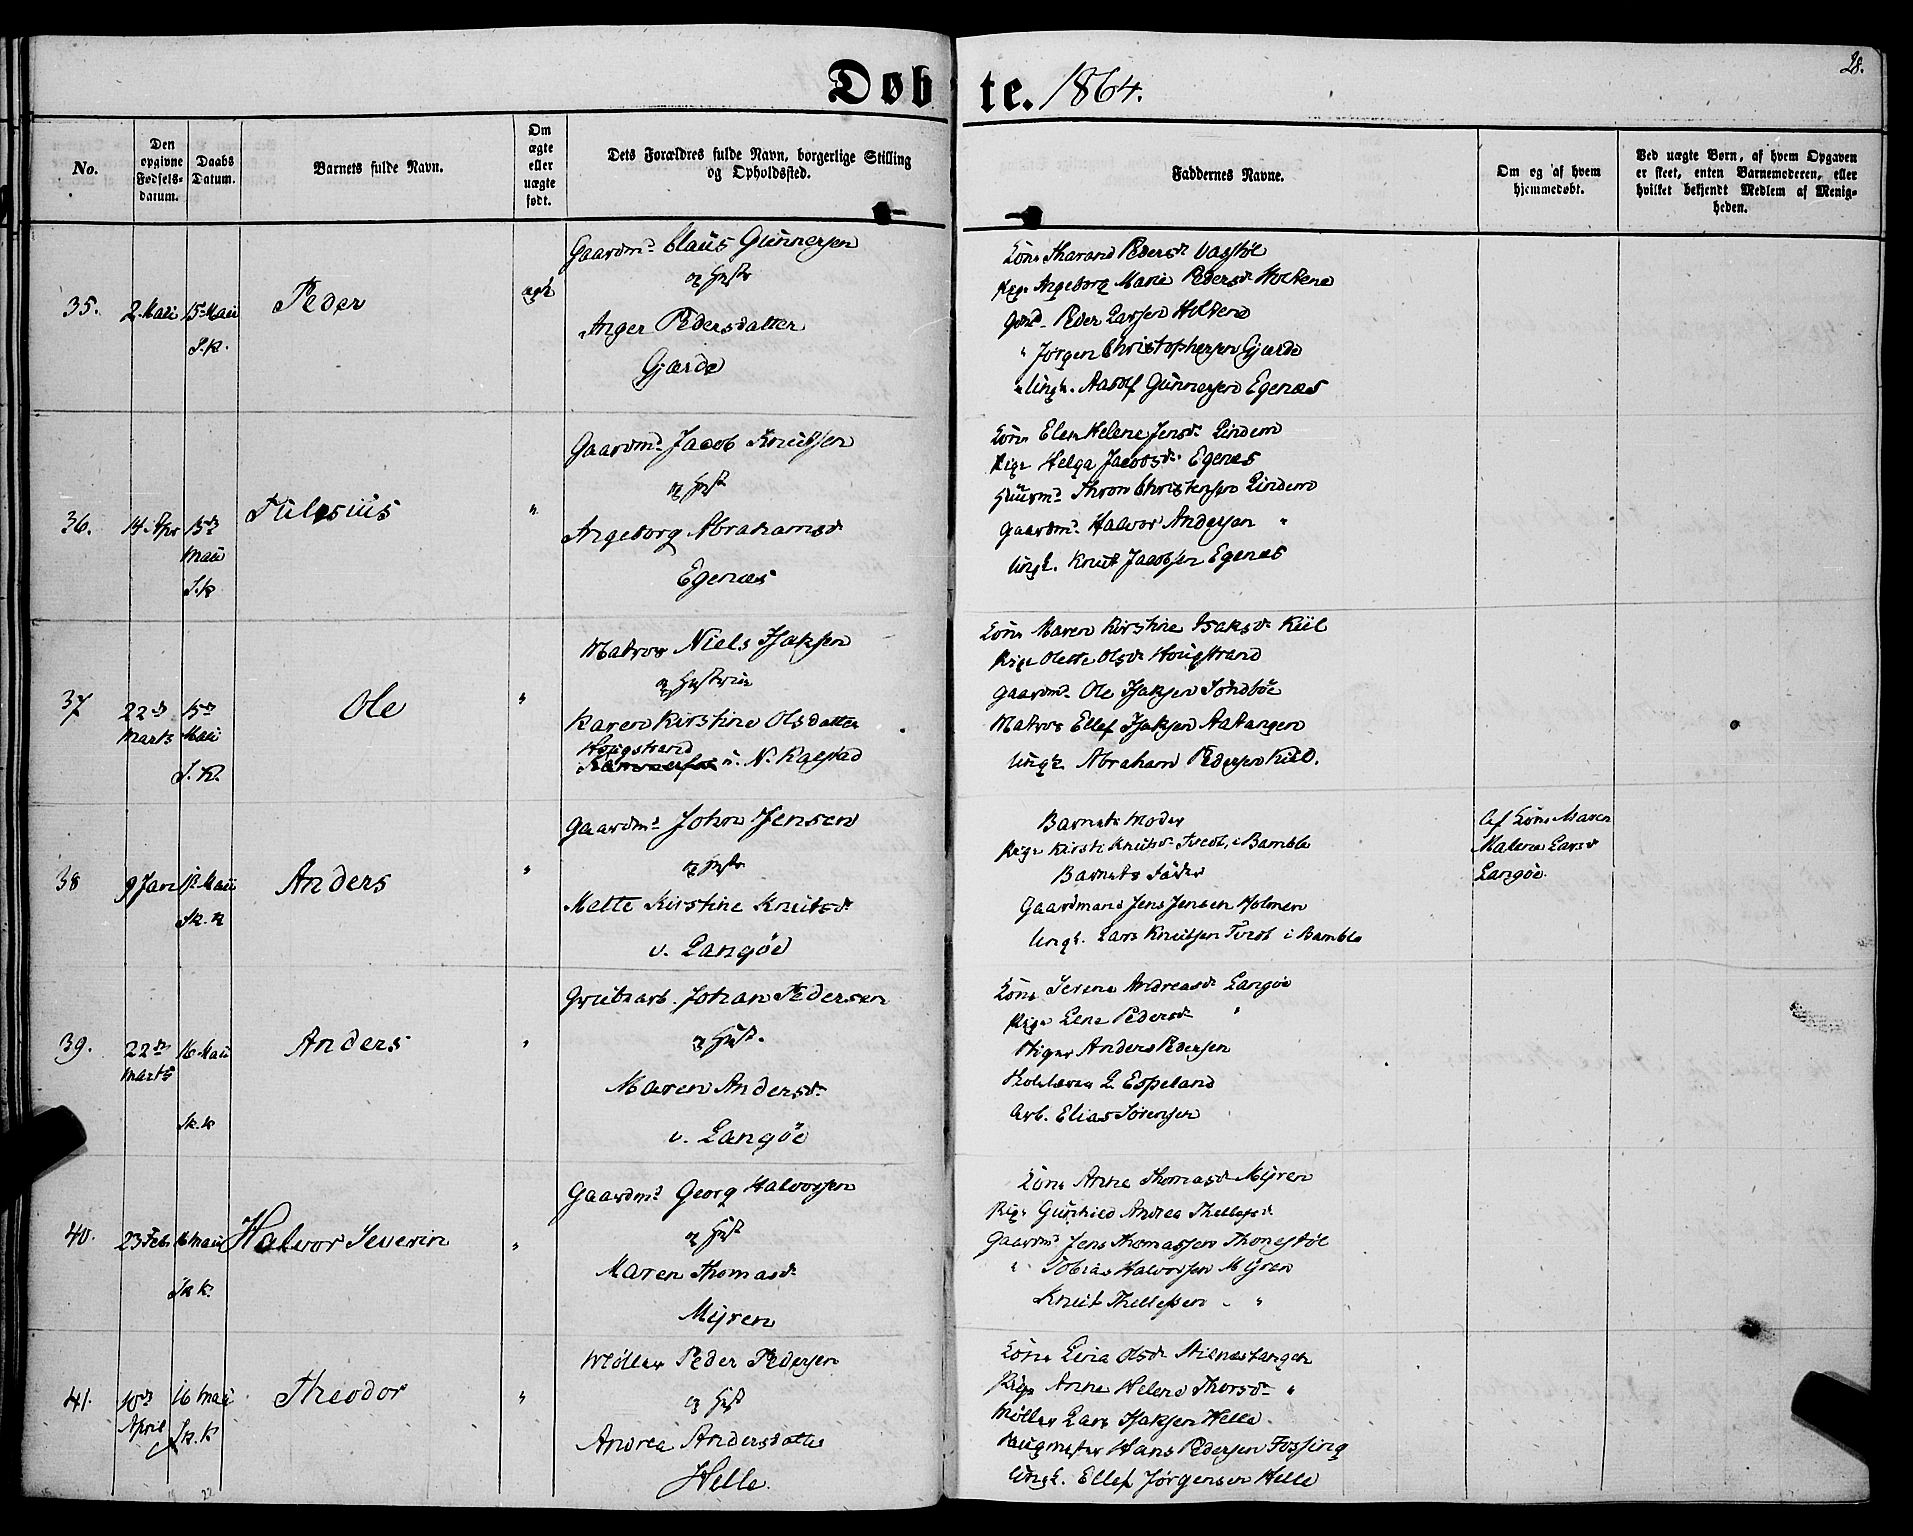 Døbte. 1864.
28.
No.
Den opgivne Fødsels-datum.
Daabs Datum.
Barnets fulde Navn.
Om ægte eller uægte født.
Dets Forældres fulde Navn, borgerlige Stilling og Opholdssted.
Faddernes Navne.
Om og af hvem hjemmedøbt.
Ved uægte Børn, af hvem Opgaven er skeet, enten Barnemoderen, eller hvilket bekjendt Medlem af Menigheden.
35.
2 Mai
15 Mai
S.k.
Peder
ægte
Gaardmd Claus Gunnersen
og Hustr
Anger Pedersdatter
Gjærde
Kone Tharand Pedersd Vasstöl
Pige Ingeborg Marie Pedersd Holtene
Gmd Peder Larsen Holtene
" Jörgen Christophersen Gjærde
Ungk. Aadolf Gunnersen Egenæs
36.
14 Apr
15de
Mai
S.k
Tulesius
"
Gaardmd Jacob Knutsen
og Hust
Ingeborg Abrahamsd
Egenæs
Kone Elen Helene Jensd Lindem
Pige Helga Jacobsd. Egenæs
Huusmd Thron Christensen Lindem
Gaardmd Halvor Andersen "
Ungk. Knut Jacobsen Egenæs
37
22de
Marts
15de
Mai
S.k.
Ole
"
Matros Niels Isaksen
og Hustrue
Karen Kirstine Olsdatter
Hougstrand
u. N. Kalstad
Kone Maren Kirstine Isaksd Kiil
Pige Olette Olsd Hougstrand
Gaardmd Ole Isaksen Sondböe
Matros Ellef Isaksen Aatangen
Ungk Abraham Pedersen Kiil.
38
9 Jan
15 Mai
Sk.k
Anders
"
Gaardmd John Jensen
og Hustr
Mette Kirstine Knutsd
v. Langöe
Barnets Moder
Pige Kirsti Knutsd Tvedt, i Bamble
Barnets Fader
Gaardmand Jens Jensen Holmen
Ungk. Lars Knutsen Tvedt i Bamble
Af Kone Maren
Malene Larsd
Langöe
39.
22de
Marts
16 Mai
Sk.k
Anders
"
Grubearb. Johan Pedersen
og Hust.
Maren Andersd
v. Langöe
Kone Serine Andreasd Langöe
Pige Lene Pedersd "
Stiger Anders Pedersen
L. Espeland
Arb. Elias Sörensen
40.
23 Feb
16 Mai
Sk k.
Halvor Severin
"
Gaardmd Georg Halvorsen
og Hust
Maren Thomasd
Myren
Kone Anne Thomasd Myren
Pige Gunhild Andrea Thellefsd
Gaardmd Jens Thomassen Thonestöl
" Tobias Halvorsen Myren
Knut Thellefsen "
41.
10de
April
16 Mai
Sk.k
Theodor
"
Möller Peder Pedersen
og Hust
Andrea Andersdatter
Helle.
Kone Lina Olsd Stilnestangen
Pige Anne Helene Thorsd "
Möller Lars Isaksen Helle.
Hans Pedersen Fossing
Ungk. Ellef Jörgensen Helle